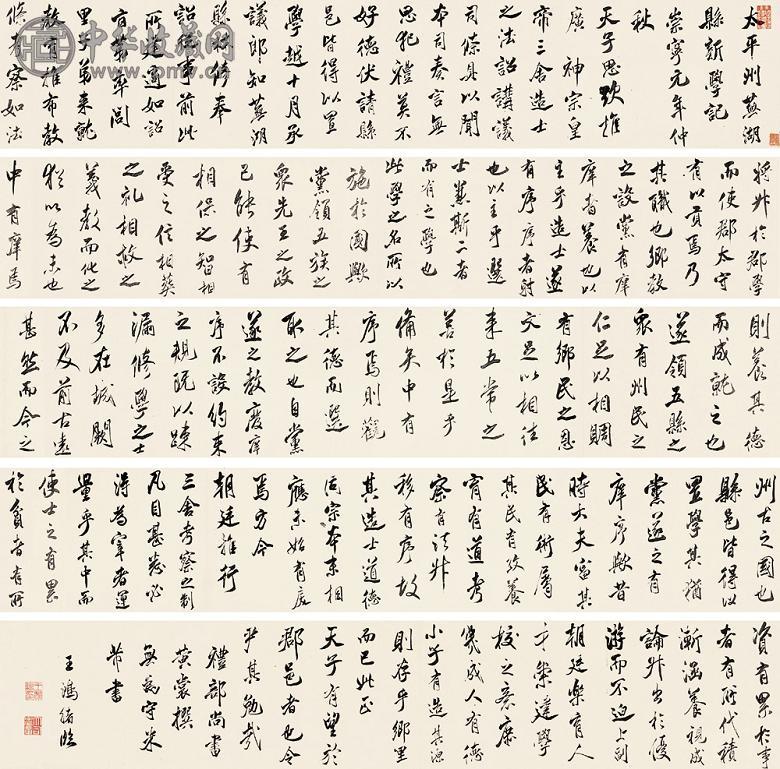 太平州蕪湖
縣新學記
崇寧元年仲
秋
天子思欲推
廣神宗皇
帝三舍造士
之法詔講議
司條具以聞
本司奏言無
思犯禮莫不
好德伏請縣
邑皆得以置
學越十月承
議郎知蕪湖
縣林修奉
詔從事前此
所建適如詔
旨
里乃益來就
教育推布教
修考察如法
將升於郡學
而使郡太守
有以貢焉乃
其職也鄉教
之設黨有庠
庠者養也以
主乎造士遂
有序序者射
也以主乎選
士兼斯二者
而有之學也
此學之名所以
施於國歟
黨領五族之
衆先王之政
已能使有
相保之智相
受之信相葬
之礼相救之
義教而化之
猶以為未也
中有庠焉
則養其德
而成就之也
遂領五縣之
衆有州民之
仁足以相賙
有鄉民之恩
文足以相往
來五常之
善於是乎
備矣中有
序焉則觀
其德而選
取之也自黨
遂之教廢庠
序不設約束
之規既以疎
漏修學之士
多在城闕
不及前古遠
甚然而今之
州古之國也
縣邑皆得以
置學其猶
黨遂之有
庠序歟昔
時大夫寓其
民有術屬
其民有攷養
育有道考
察有法升
移有序故
其造士道德
同宗本末相
應未始有戾
焉方今
朝廷推行
三舍考察之制
凡目甚悉必
得為宰者運
量乎其中而
使士之有累
於貧者有所
資有累於事
者有所代積
漸涵養視成
論升出於優
游而不迫上副
朝廷樂育人
才樂達學
校之意庶
幾成人有德
小子有造其源
則存乎鄉里
而已此正
天子有望於
郡邑者也令
尹其勉哉
禮部尚書
黃裳撰
無為守米
芾書
王鴻緒臨
中华收藏网